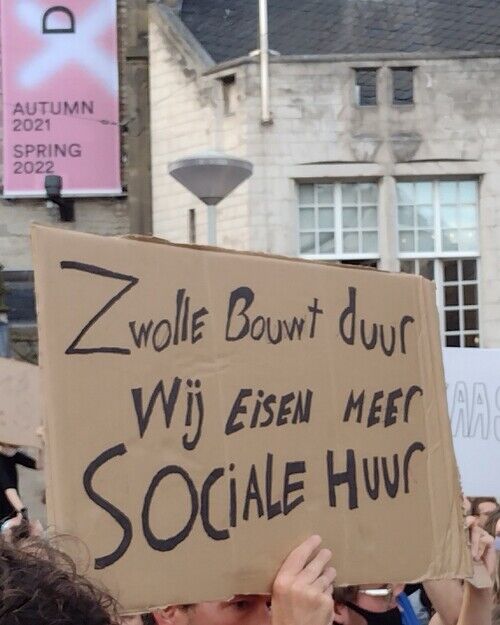 D
AUTUMN
2021
SPRING
2022
Zwolle Bouwt duur
Wij EiSEN MEEr
SOCiALE HUUr